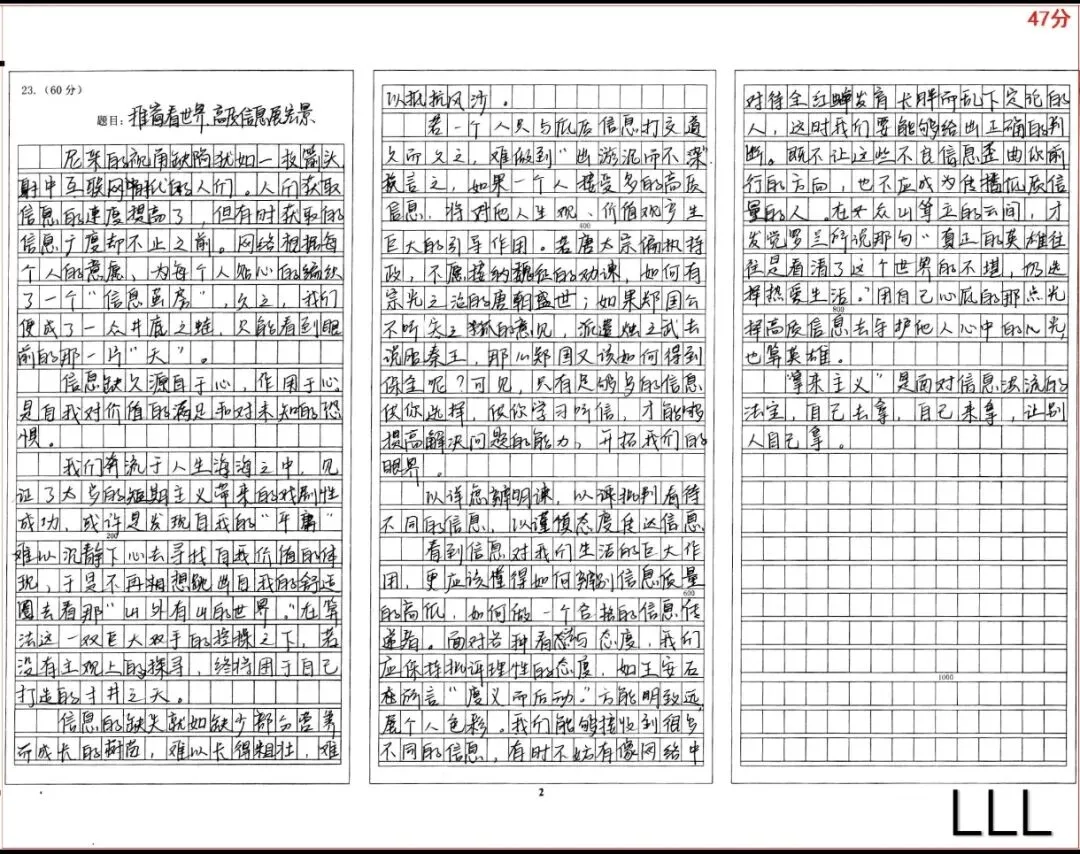 47分
23.（60分）
题目：推窗看世界，高质信息展宏景
尼采的视角缺陷犹如一枚箭头
射中互联网时代的人们。人们获取
信息的速度提高了，但有时获取的
信息广度却不止之前。网络根据每
个人的意愿，为每个人贴心的编织
了一个“信息茧房”，久之，我们
便成了一众井底之蛙，只能看到眼
前的那一片“天”。
信息缺久源自于心，作用于心，
是自我对价值的满足和对未知的恐
惧。
我们奔流于人生海海之中，见
证了太多的短期主义带来的戏剧性
成功，或许是发现自我的“平庸”
200
难以沉静下心去寻找自我价值的体
现，于是不再想跳出自我的舒适
圈去看那“山外有山的世界。”在算
法这一双巨大双手的操之下，若
没有主观上的探寻，终将困于自己
打造的寸井之天。
信息的缺失就如缺少部分营养
而成长的树苗，难以长得粗壮，难
以抵抗风沙。
若一个人只与低质信息打交道
久而久之，难做到“出淤泥而不染”，
换言之，如果一个人接受多的高质
信息，将对他人生观、价值观产生
400
巨大的引导作用。若唐太宗偏执持
政，不愿接纳魏征的劝谏，如何有
宗光之治的唐朝盛世；如果郑国公
不听之狐的意见，派遣烛之武去
说服秦王，那么郑国又该如何得到
保全呢？可见，只有足够多的信息
供你选择，供你学习听信，才能够
提高解决问题的能力，开拓我们的
眼界。
以详虑辨明谏，以评批判看待
不同的信息，以谨慎态度传达信息
看到信息对我们生活的巨大作
用，更应该懂得如何辨别信息质量
600
的高低，如何做一个合格的信息传
递者。面对各种看态与态度，我们
应保持批评理性的态度，如王安石
在所言“度义而后动。”方能明致远，
展个人色彩。我们能够接收到很多
不同的信息，有时不妨有像网络中
2
对待全红婵发育长胖而乱下定论的
人，这时我们要能够给出正确的判
断。既不让这些不良信息歪曲你前
行的方向，也不应成为传播低质信
量的人。在众山耸立的云间，才
发觉罗兰所说那句“真正的英雄往
往是看清了这个世界的不堪，仍选
择热爱生活。”用自己心底的那点光
800
择高质信息去守护他人心中的光，
也算英雄。
“拿来主义”是面对信息洪流的
法宝，自己去拿，自己来拿，让别
人自己拿。
1000
LLL